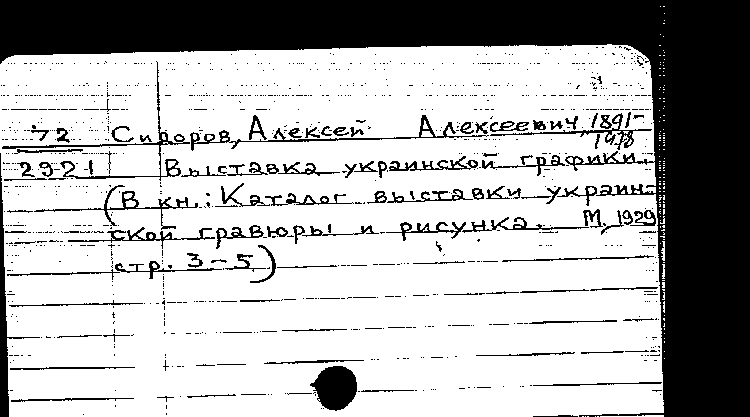 72 Сидоров, Алексей Алексеевич, 1891-
1978
2921 Выставка украинской графики.
(В кн.: Каталог выставки украин-
ской гравюры и рисунка. М, 1929
стр. 3-5)